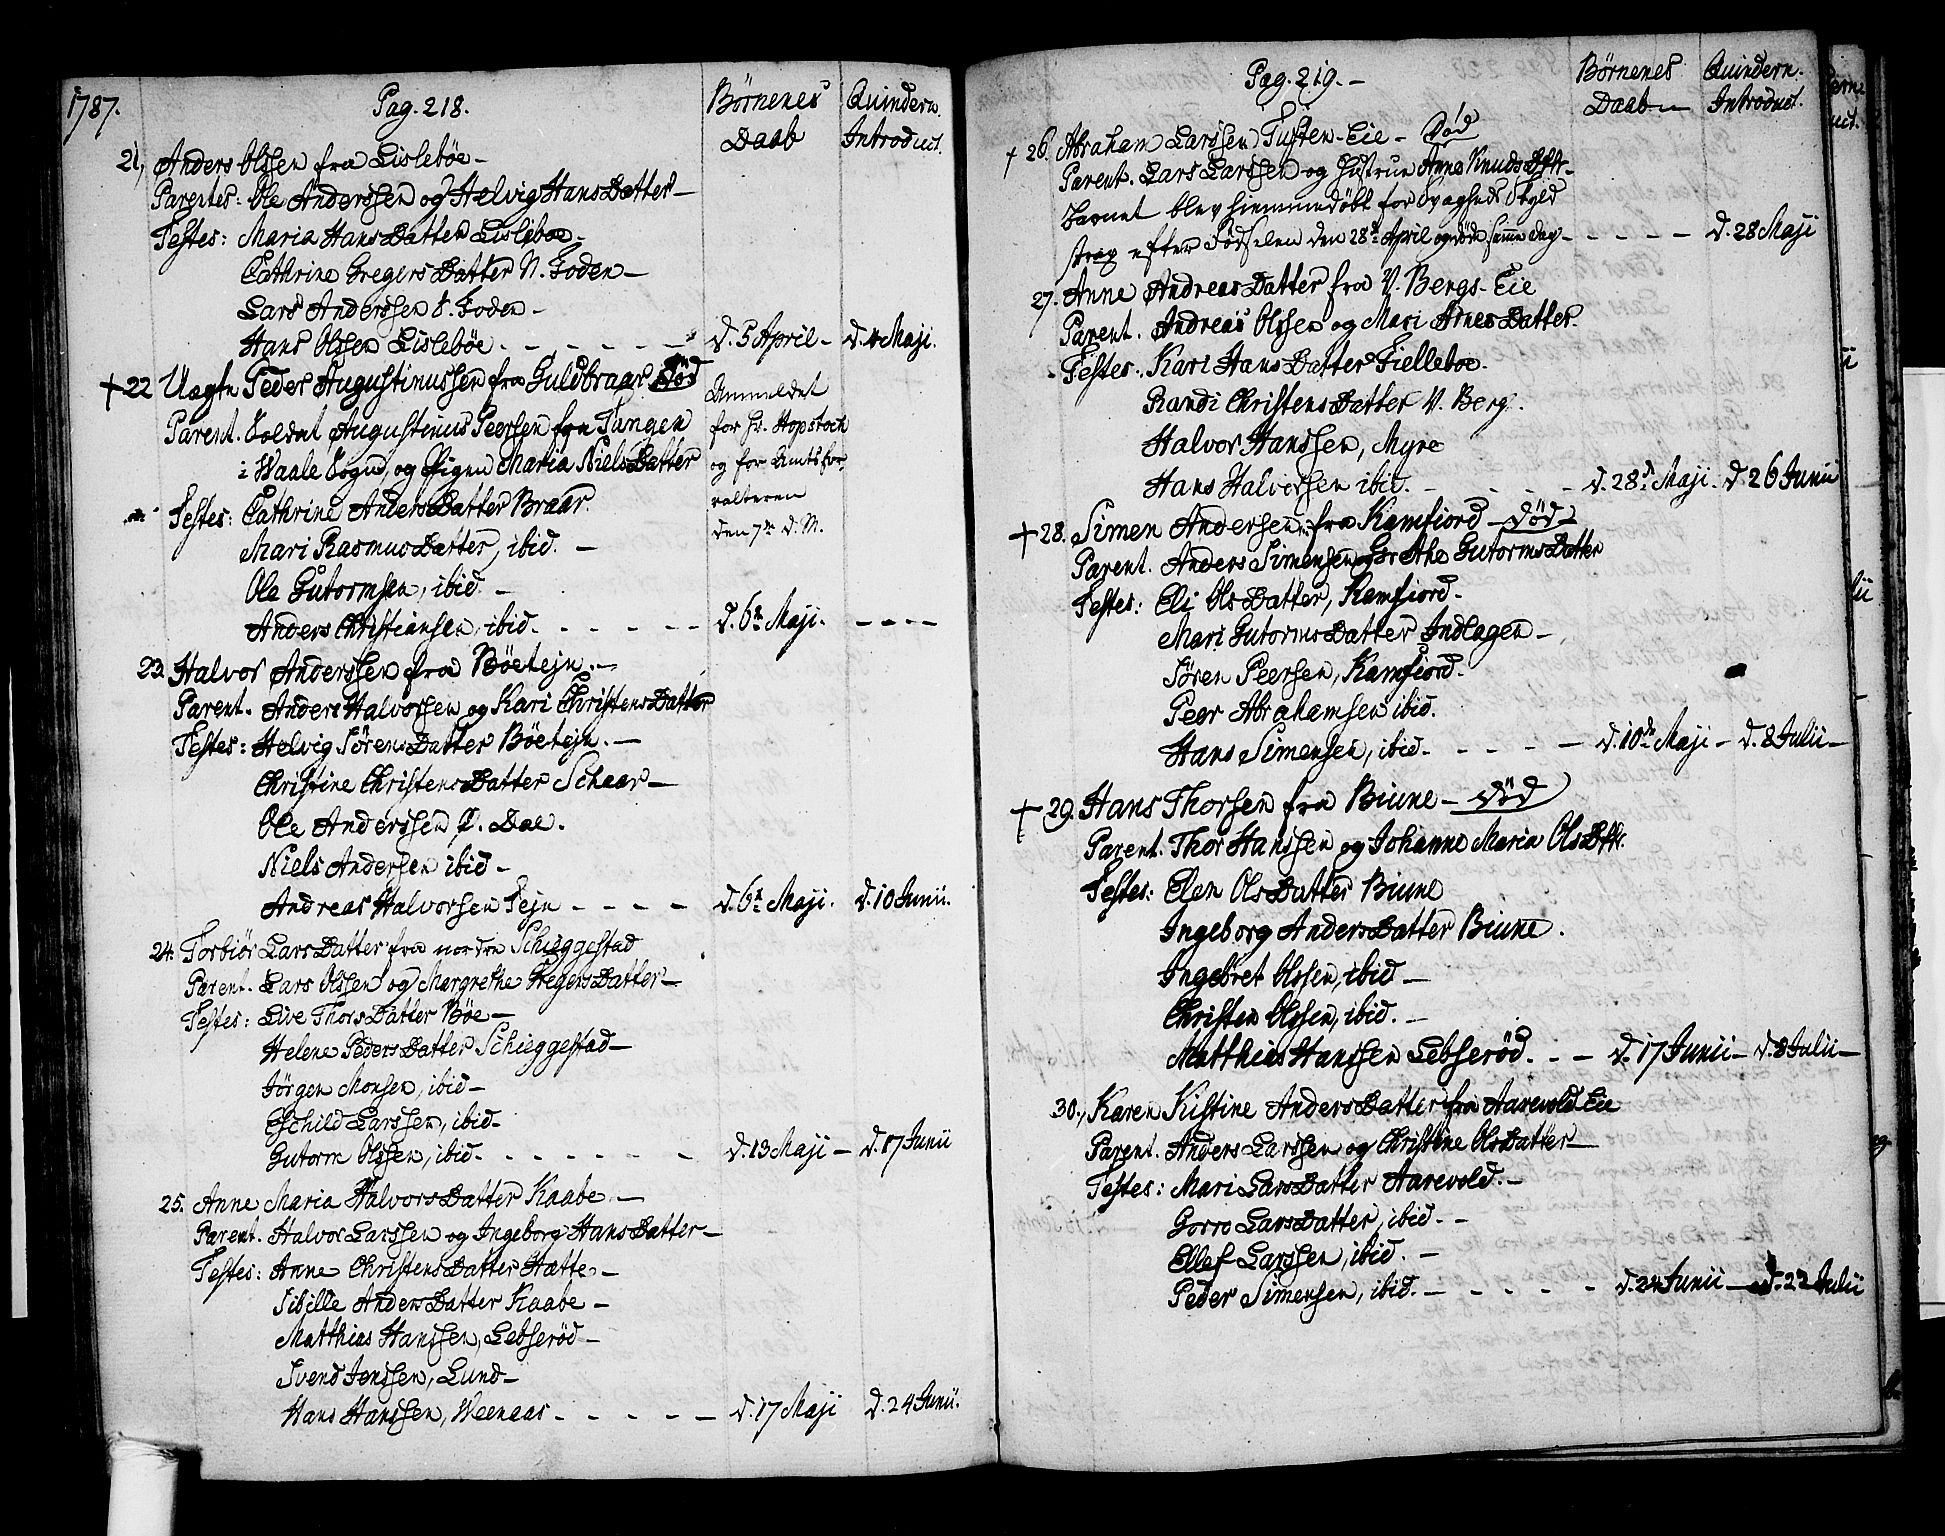 1787.
Pag. 218.
Börnenes Daab
Quindern. Introduct.
21, Anders Olssen fra Lislebøe -
Parentes: Ole Anderssen og Helvig HansDatter -
Testes: Maria HansDatter Lislebøe -
Cathrine GregersDatter N. Foden -
Lars Anderssen Foden -
Hans Olssen Lislebøe - - - - - - d. 5 April - d. 4 Maji.
+ 22 Uægte Peder Augustinussen fra Guldbraar Død
Parent. Soldat Augustinus Peersen fra Tangen
i Waale Sogn, og Pigen Maria NielsDatter
Testes: Cathrine AndersDatter Braar.
Mari RasmusDatter, ibid. -
Ole Gutormsen, ibid. -
Anders Christiansen, ibid. - - - - - d. 6te Maji. - - - -
Anmeldet
for Hr. Hopstock
og for Amtsfor,
valteren
den 7de d. M.
23. Halvor Anderssen fra Bøetejn. -
Parent. Anders Halvorssen og Kari ChristensDatter
Testes: Helvig SörensDatter Bøetejn. -
Christine ChristensDatter Schaar -
Ole Anderssen Ø. Dae.
Niels Andersen ibid -
Andreas Halvorsen Tejn - - - - d. 6te Maji. d. 10 Junii.
24. Torbiör LarsDatter fra nordre Schieggestad
Parent. Lars Olssen og Margrethe GregersDatter -
Testes: Live ThorsDatter Bøe -
Helene PedersDatter Schieggestad -
Jörgen Monsen, ibid -
Eschild Larssen, ibid -
Gutorm Olssen, ibid. - - - - - - d. 13 Maji - d. 17 Junii
25. Anne Maria HalvorsDatter Kaabe. -
Parent. Halvor Larssen og Ingeborg HansDatter -
Testes: Anne ChristensDatter Hatte. -
Sibille AndersDatter Kaabe -
Matthias Hanssen, Lebserød -
Svend Jenssen, Lund -
Hans Hanssen, Weenaas - - - - - d. 17 Maji d. 24 Junii.
Pag. 219. -
Börnenes Daab -
Quindern. Introduct.
+ 26. Abraham Larssen Tuften-Eie - Död
Parent. Lars Larssen og Hustrue Anne KnudsDttr -
Barnet blev hiemmedöbt for Svagheds Skyld
strax efter Födselen den 28de April og döde samme dag - - - - - d. 28 Maji
27. Anne AndreasDatter fra V. Bergs-Eie
Parent. Andreas Olssen og Mari ArnesDatter.
Testes. Kari HansDatter Fiellebøe.
Randi ChristensDatter V. Berg.
Halvor Hanssen, Myre
Hans Halvorsen ibid. - - - - - d. 28de Maji. d. 26 Junii
+ 28. Simen Andersen fra Kamfiord - död -
Parent. Anders Simensen og Grethe GutormsDatter
Testes: Eli OlsDatter, Kamfiord.
Mari GutormsDatter Indlagen -
Sören Peersen, Kamfiord.
Peer Abrahamsen ibid.
Hans Simensen, ibid. - - - - d. 10de Maji - d. 8 Julii -
+ 29. Hans Thorsen fra Biune - död
Parent. Thor Hanssen og Johanne Maria OlsDttr.
Testes: Elen OlsDatter Biune
Ingeborg AndersDatter Biune.
Ingebret Olssen, ibid -
Christen Olssen, ibid. -
Matthias Hanssen Lebserød. - - d. 17 Junii - d. 8 Julii -
30., Karen Kistine AndersDatter fra Aarevold Eie
Parent. Anders Larssen og Christine OlsDatter -
Testes: Mari LarsDatter Aarevold. -
Gorro LarsDatter, ibid. -
Ellef Larssen, ibid. -
Peder Simensen, ibid. - - - - - d. 24 Junii - d. 22 Julii